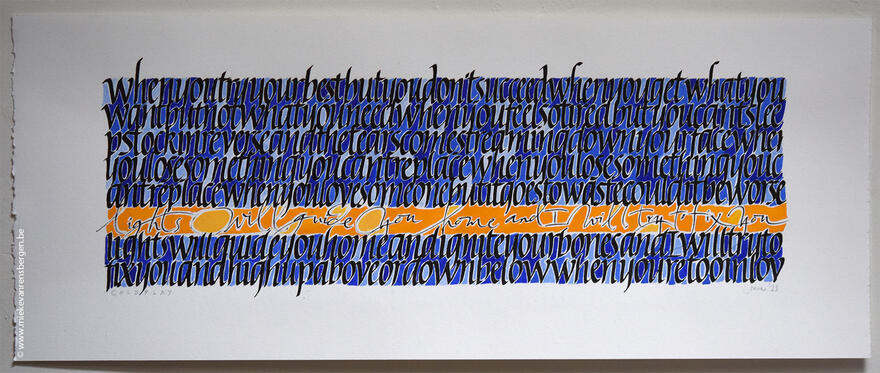 whenyoutryyourbestbutyoudon'tsucceedwhenyouget whatyou
wantbutnotwhatyouneedwhenyoufeelsotiredbutyoucan'tslee
pstuckinreverseandthetearscomestreamingdownyourfacewhen
youlosesomethingyoucan'treplacewhenyoulosesomethingyouc
antreplacewhenyoulovesomeonebutitgoestowastecoulditbeworse
lights will guide you home and I will try to fix you
lightswillguideyouhomeandigniteyourbonesandIwilltryto
fixyouandhighupaboveordownbelowwhenyouretooinlov
COLDPLAY
© www.miekevanrensbergen.be